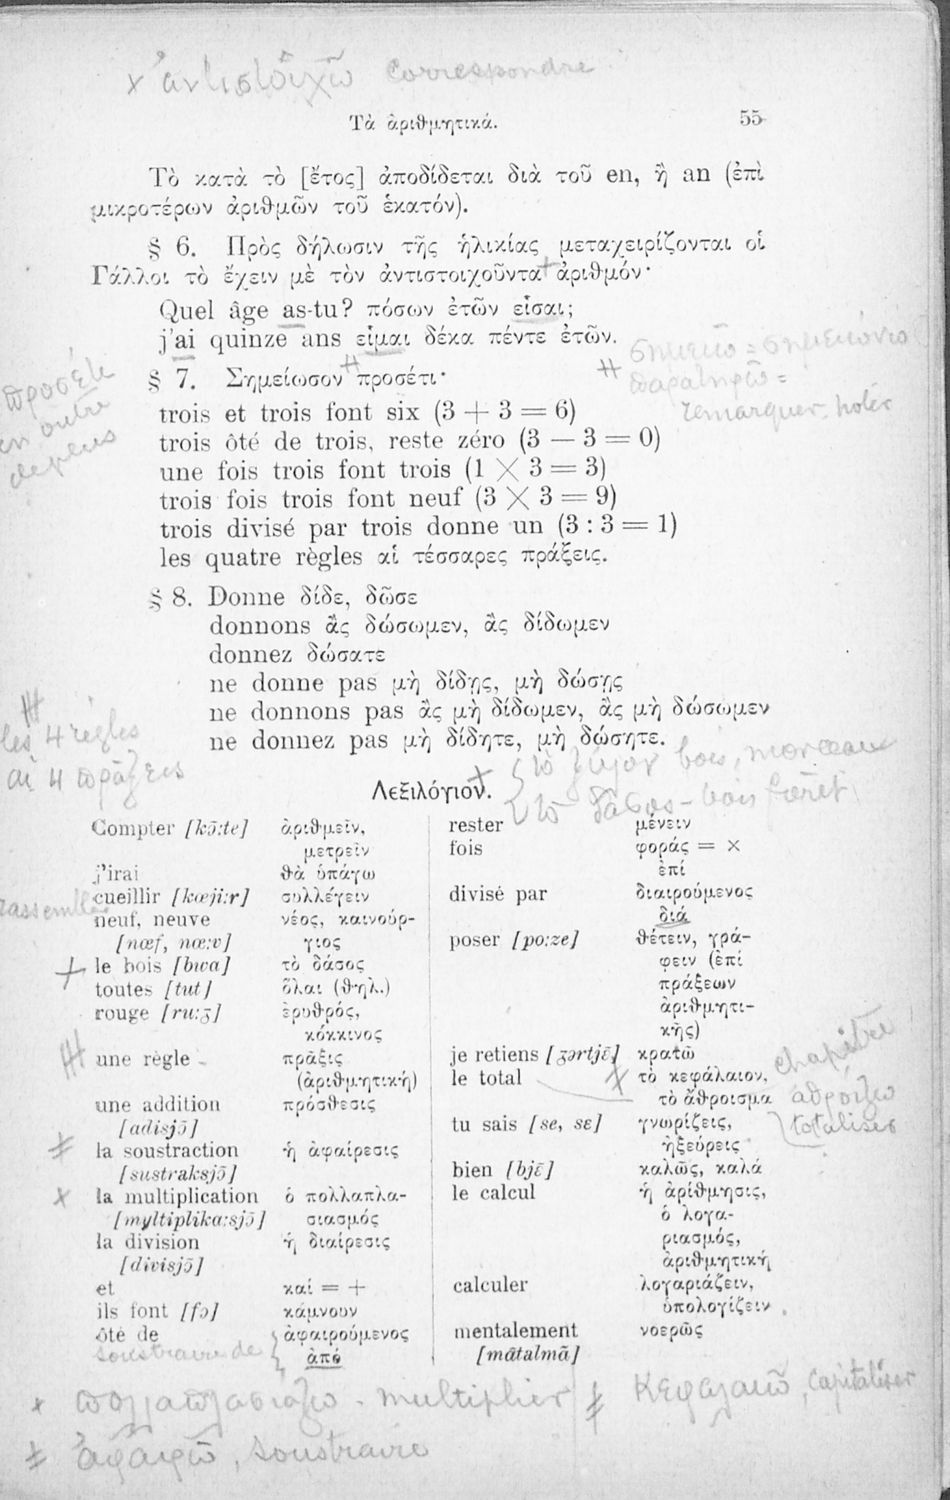 × ἀντιστοιχῶ correspondre
Τὰ ἀριθμητικά.
55
Τὸ κατὰ τὸ [ἔτος] ἀποδίδεται διὰ τοῦ en, ἢ an (ἐπὶ
μικροτέρων ἀριθμῶν τοῦ ἑκατόν).
§ 6. Πρὸς δήλωσιν τῆς ἡλικίας μεταχειρίζονται οἱ
Γάλλοι τὸ ἔχειν μὲ τὸν ἀντιστοιχοῦντα ἀριθμόν·
Quel âge as-tu? πόσων ἐτῶν εἶσαι;
j'ai quinze ans εἶμαι δέκα πέντε ἐτῶν.
σημειῶ = σημειώνω
παρατηρῶ =
remarquer, noter
προσέτι
en outre
de plus
§ 7. Σημείωσον προσέτι·
trois et trois font six (3 + 3 = 6)
trois ôté de trois, reste zéro (3 — 3 = 0)
une fois trois font trois (1 × 3 = 3)
trois fois trois font neuf (3 × 3 = 9)
trois divisé par trois donne un (3 : 3 = 1)
les quatre règles αἱ τέσσαρες πράξεις.
§ 8. Donne δίδε, δῶσε
donnons ἂς δώσωμεν, ἂς δίδωμεν
donnez δώσατε
ne donne pas μὴ δίδῃς, μὴ δώσῃς
ne donnons pas ἂς μὴ δίδωμεν, ἂς μὴ δώσωμεν
ne donnez pas μὴ δίδητε, μὴ δώσητε.
les 4 règles
αἱ 4 πράξεις
τὸ ξύλον bois, morceau
τὸ δάσος - bois forêt
Λεξιλόγιον.
Compter [kɔ̃:te] ἀριθμεῖν,
μετρεῖν
j'irai θὰ ὑπάγω
cueillir [kœji:r] συλλέγειν
rassembler
neuf, neuve νέος, καινούρ-
[nœf, nœ:v] γιος
le bois [bwa] τὸ δάσος
toutes [tut] ὅλαι (θηλ.)
rouge [ru:ʒ] ἐρυθρός,
κόκκινος
une règle πρᾶξις
(ἀριθμητική)
une addition πρόσθεσις
[adisjɔ̃]
la soustraction ἡ ἀφαίρεσις
[sustraksjɔ̃]
la multiplication ὁ πολλαπλα-
[myltiplika:sjɔ̃] σιασμός
la division ἡ διαίρεσις
[divisjɔ̃]
et καί = +
ils font [fɔ] κάμνουν
ôté de ἀφαιρούμενος
soustraire de ἀπό
rester μένειν
fois φοράς = ×
ἐπί
divisé par διαιρούμενος
διά
poser [po:ze] θέτειν, γρά-
φειν (ἐπί
πράξεων
ἀριθμητι-
κῆς)
je retiens [ʒərtjɛ̃] κρατῶ
le total τὸ κεφάλαιον,
τὸ ἄθροισμα
chapitre
ἀθροίζω
totaliser
tu sais [se, sɛ] γνωρίζεις,
ἠξεύρεις
bien [bjɛ̃] καλῶς, καλά
le calcul ἡ ἀρίθμησις,
ὁ λογα-
ριασμός,
ἀριθμητική
calculer λογαριάζειν,
ὑπολογίζειν
mentalement νοερῶς
[mãtalmã]
× πολλαπλασιάζω - multiplier
κεφαλαιῶ, capitaliser
ἀφαιρῶ, soustraire